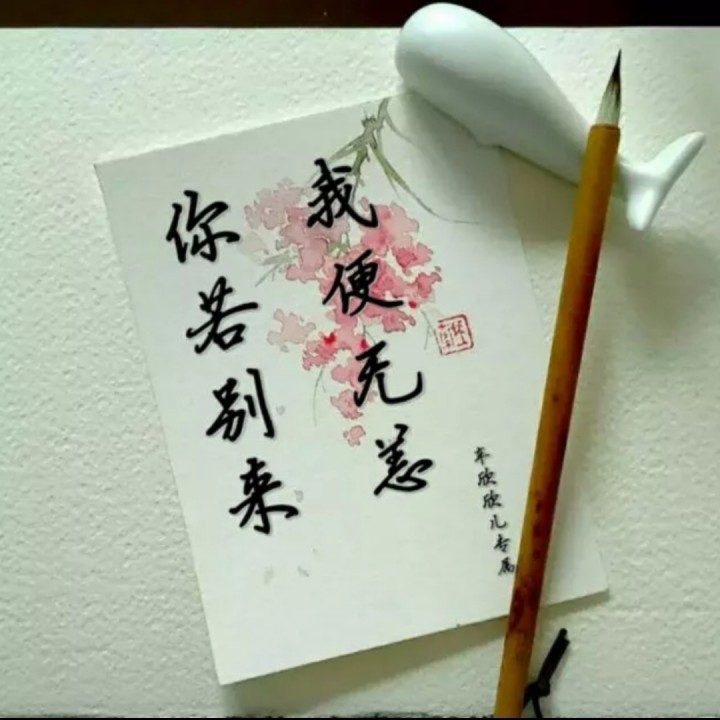 你若别来
我便无恙
车欣欣儿专属